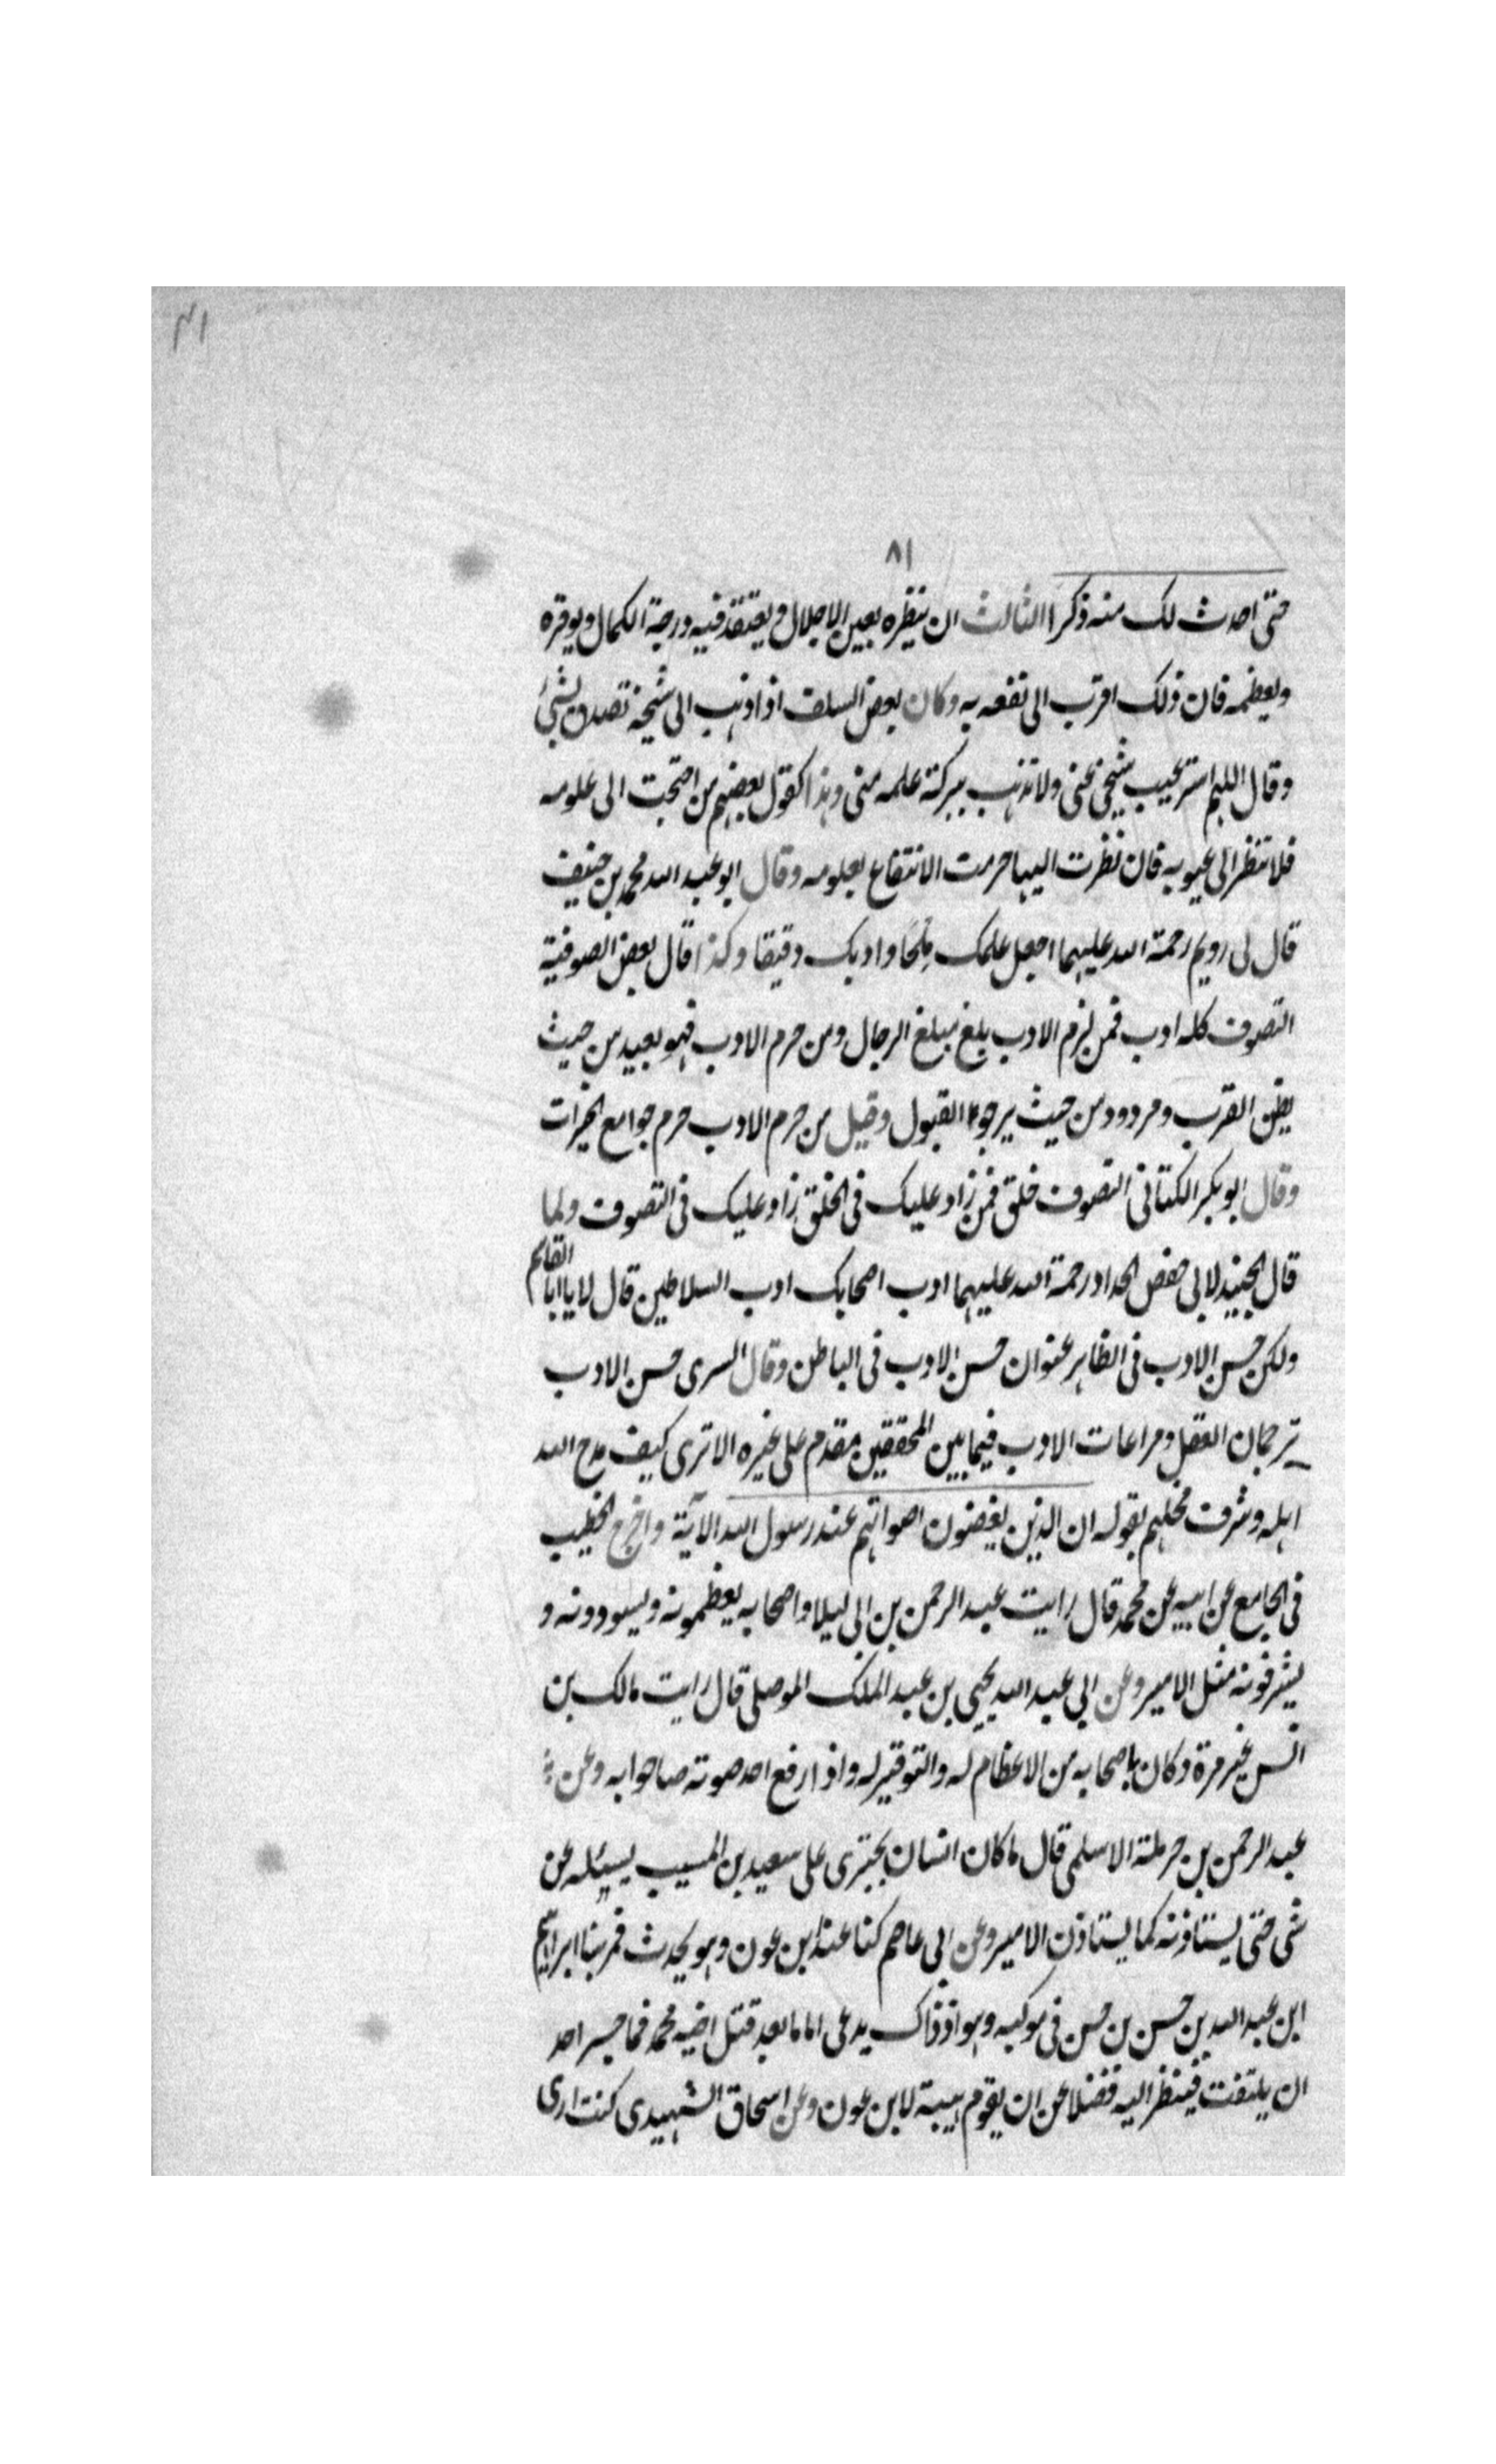 ٨١
حتى احدث لك منه ذكرا الثالث ان ينظره بعين الاجلال ويعتقد فيه درجة الكمال ويوقره
ويعظمه فان ذلك اقرب الى نفعه به وكان بعض السلف اذا ذهب الى شيخه تصدق بشئ
وقال اللهم استر عيب شيخي عني ولا تذهب ببركة علمه مني وهذا كقول بعضهم من احتجت الى علومه
فلا تنظر الى عيوبه فان نظرت اليها حرمت الانتفاع بعلومه وقال ابو عبد الله محمد بن حنيف
قال لي رويم رحمة الله عليهما اجعل علمك ملحا وادبك دقيقا وكذا قال بعض الصوفية
التصوف كله ادب فمن لزم الادب بلغ مبلغ الرجال ومن حرم الادب فهو بعيد من حيث
يظن القرب ومردود من حيث يرجو القبول وقيل من حرم الادب حرم جوامع الخيرات
وقال ابو بكر الكتاني التصوف خلق فمن زاد عليك في الخلق زاد عليك في التصوف ولما
قال الجنيد لابي حفص الحداد رحمة الله عليهما ادب اصحابك ادب السلاطين قال لا يا ابا القاسم
ولكن حسن الادب في الظاهر عنوان حسن الادب في الباطن وقال السرى حسن الادب
ترجمان العقل ومراعات الادب فيما بين المحققين مقدم على غيره الا ترى كيف مدح الله
اهله وشرف محلهم بقوله ان الذين يغضون اصواتهم عند رسول الله الآية واخرج الخطيب
في الجامع عن ابيه عن محمد قال رايت عبد الرحمن بن ابي ليلا واصحابه يعظمونه ويسودونه و
يشرفونه مثل الامير وعن ابي عبد الله يحيى بن عبد الملك الموصلي قال رايت مالك بن
انس غير مرة وكان باصحابه من الاعظام له والتوقير له واذا رفع احد صوته صاحوا به وعن
عبد الرحمن بن حرملة الاسلمي قال ما كان انسان يجترى على سعيد بن المسيب يسئله عن
شى حتى يستاذنه كما يستاذن الامير وعن ابي عاصم كنا عند ابن عون وهو يحدث فمر بنا ابراهيم
ابن عبد الله بن حسن بن حسن في موكبه وهو اذ ذاك يدعى اماما بعد قتل اخيه محمد فما جسر احد
ان يلتفت فينظر اليه فضلا عن ان يقوم هيبة لابن عون وعن اسحاق الشهيدى كنت ارى